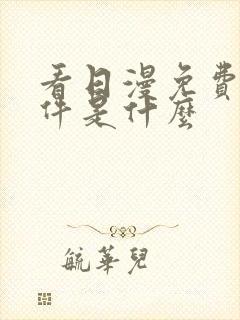 看日漫免費
件是什麼
毓華兒